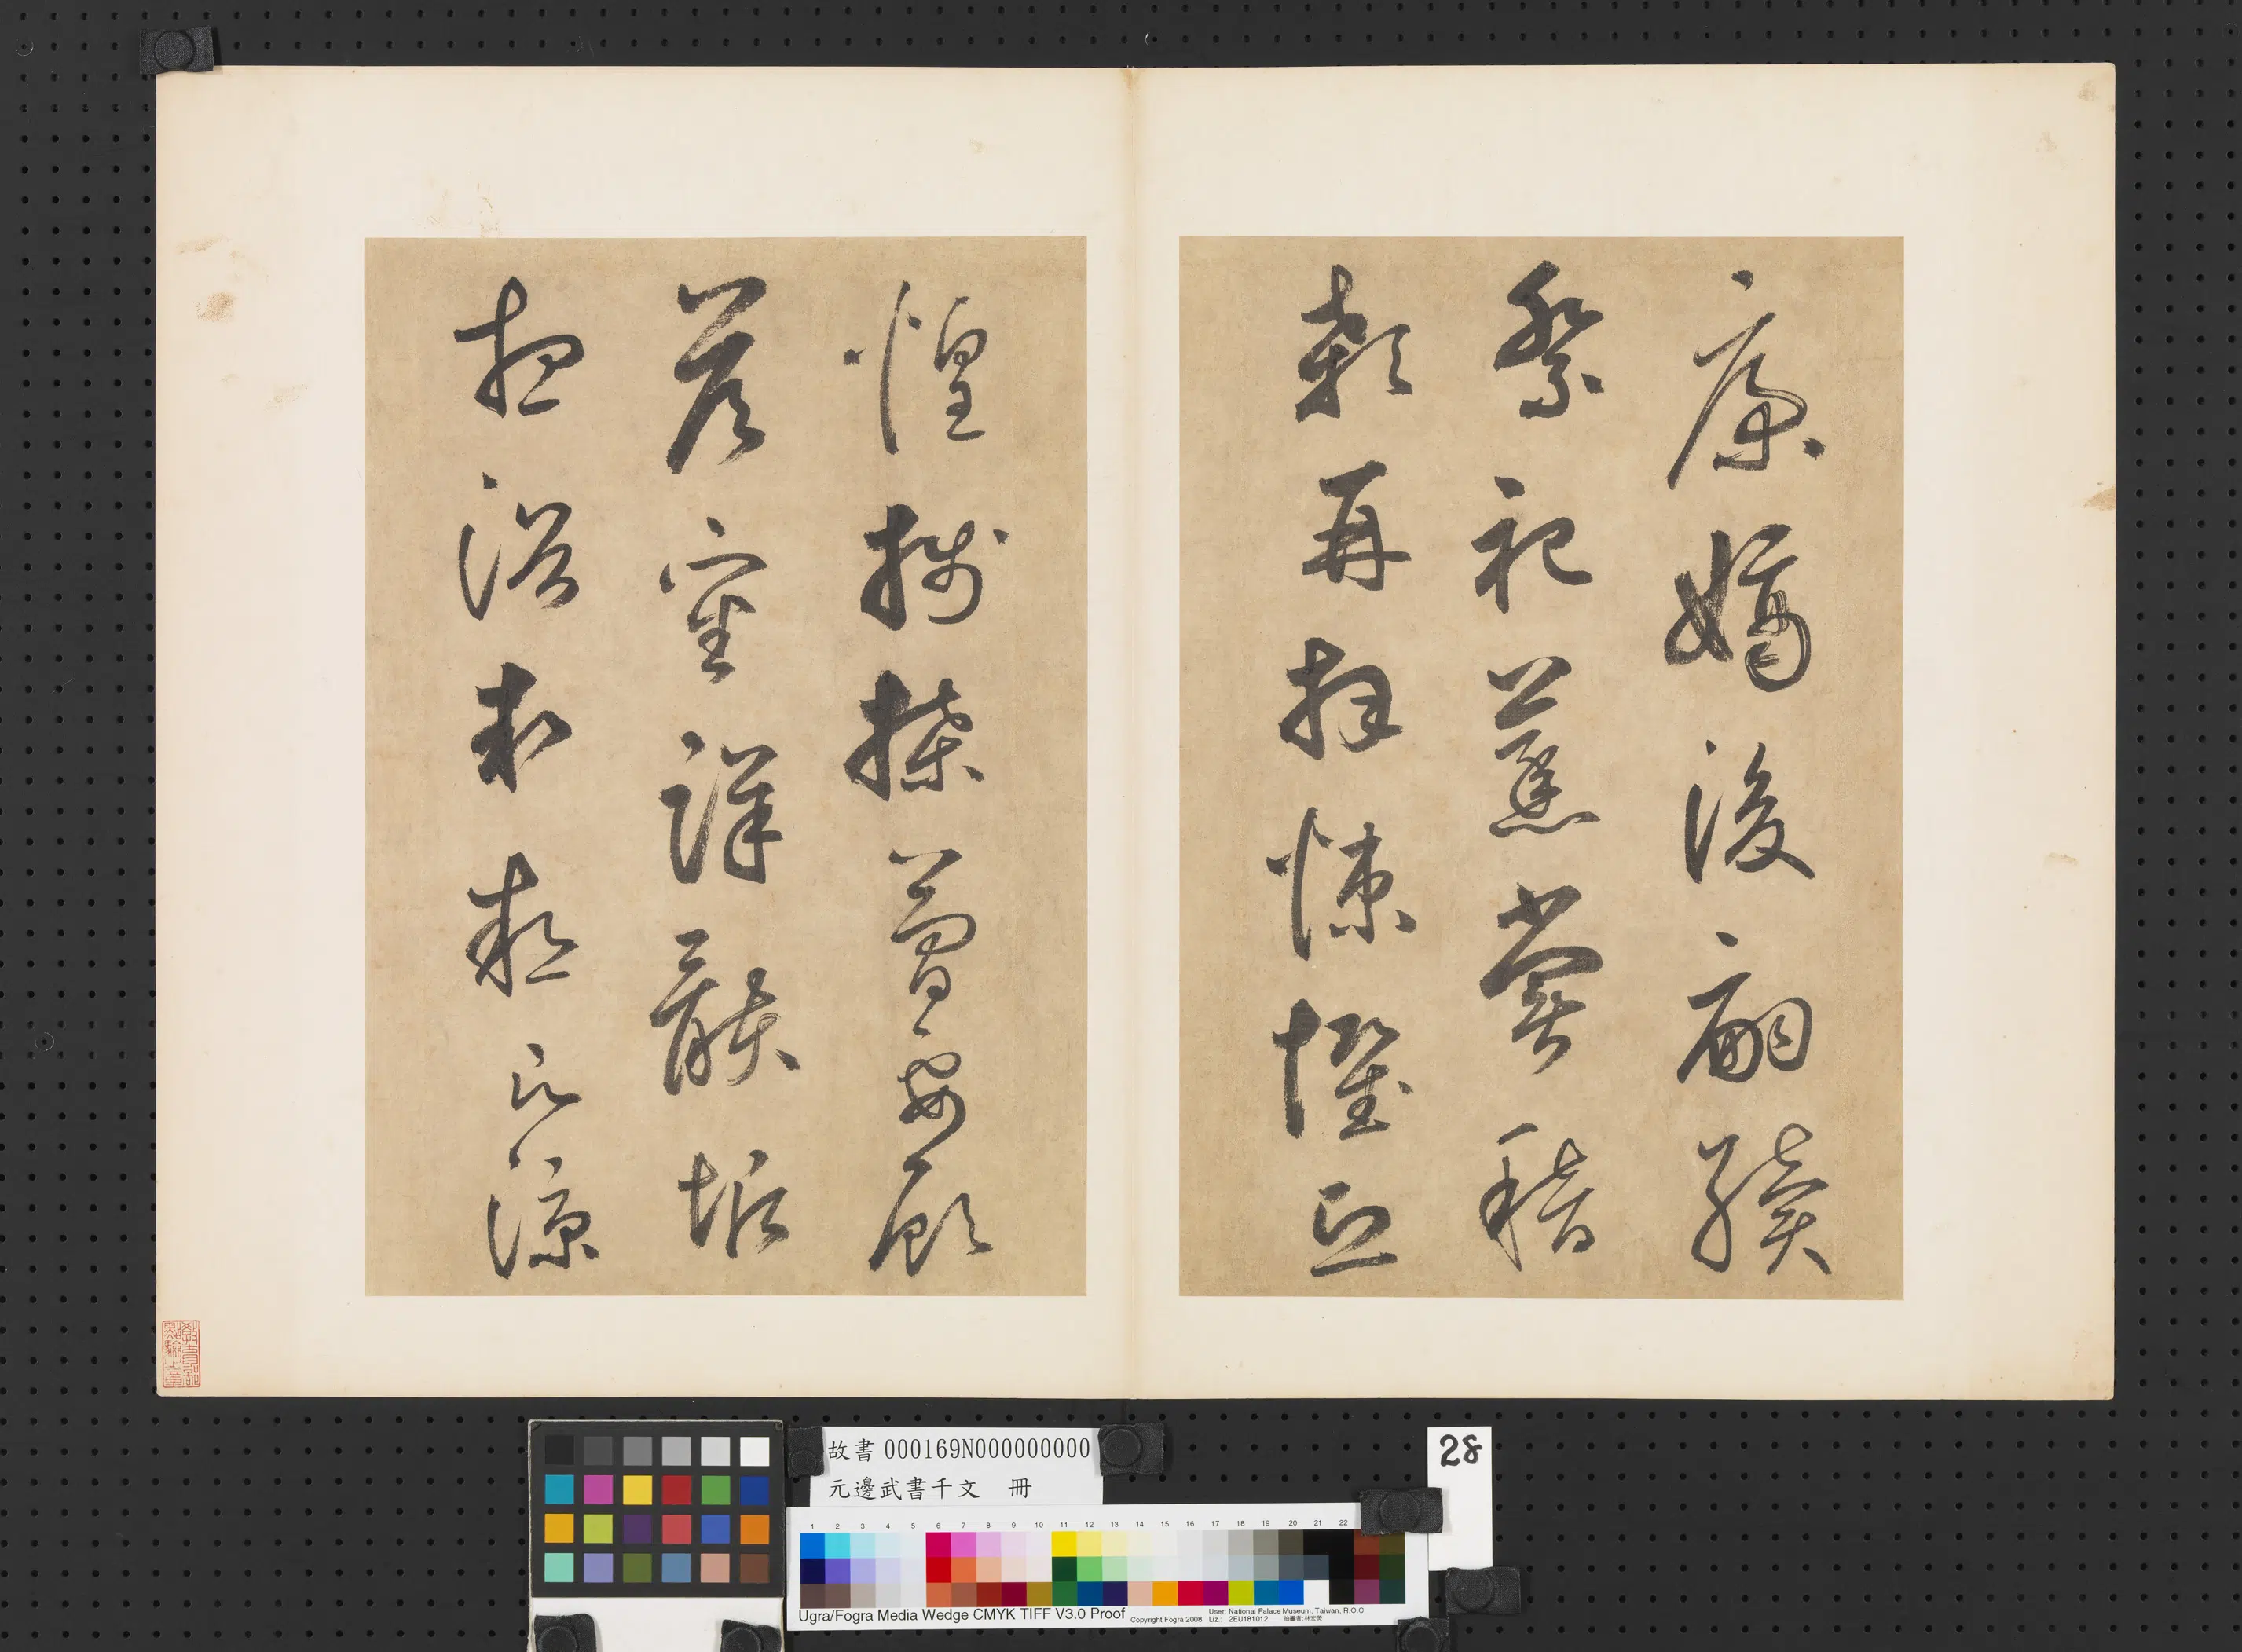 康嫡後嗣續
祭祀蒸嘗稽
顙再拜悚懼恐
惶牋牒簡要顧
答審詳骸垢
想浴執熱願涼
教育部
點驗之章
故書 000169N000000000
元邊武書千文 冊
28
1 2 3 4 5 6 7 8 9 10 11 12 13 14 15 16 17 18 19 20 21 22
Ugra/Fogra Media Wedge CMYK TIFF V3.0 Proof
Copyright Fogra 2008
User: National Palace Museum, Taiwan, R.O.C
Liz.: 2EU181012